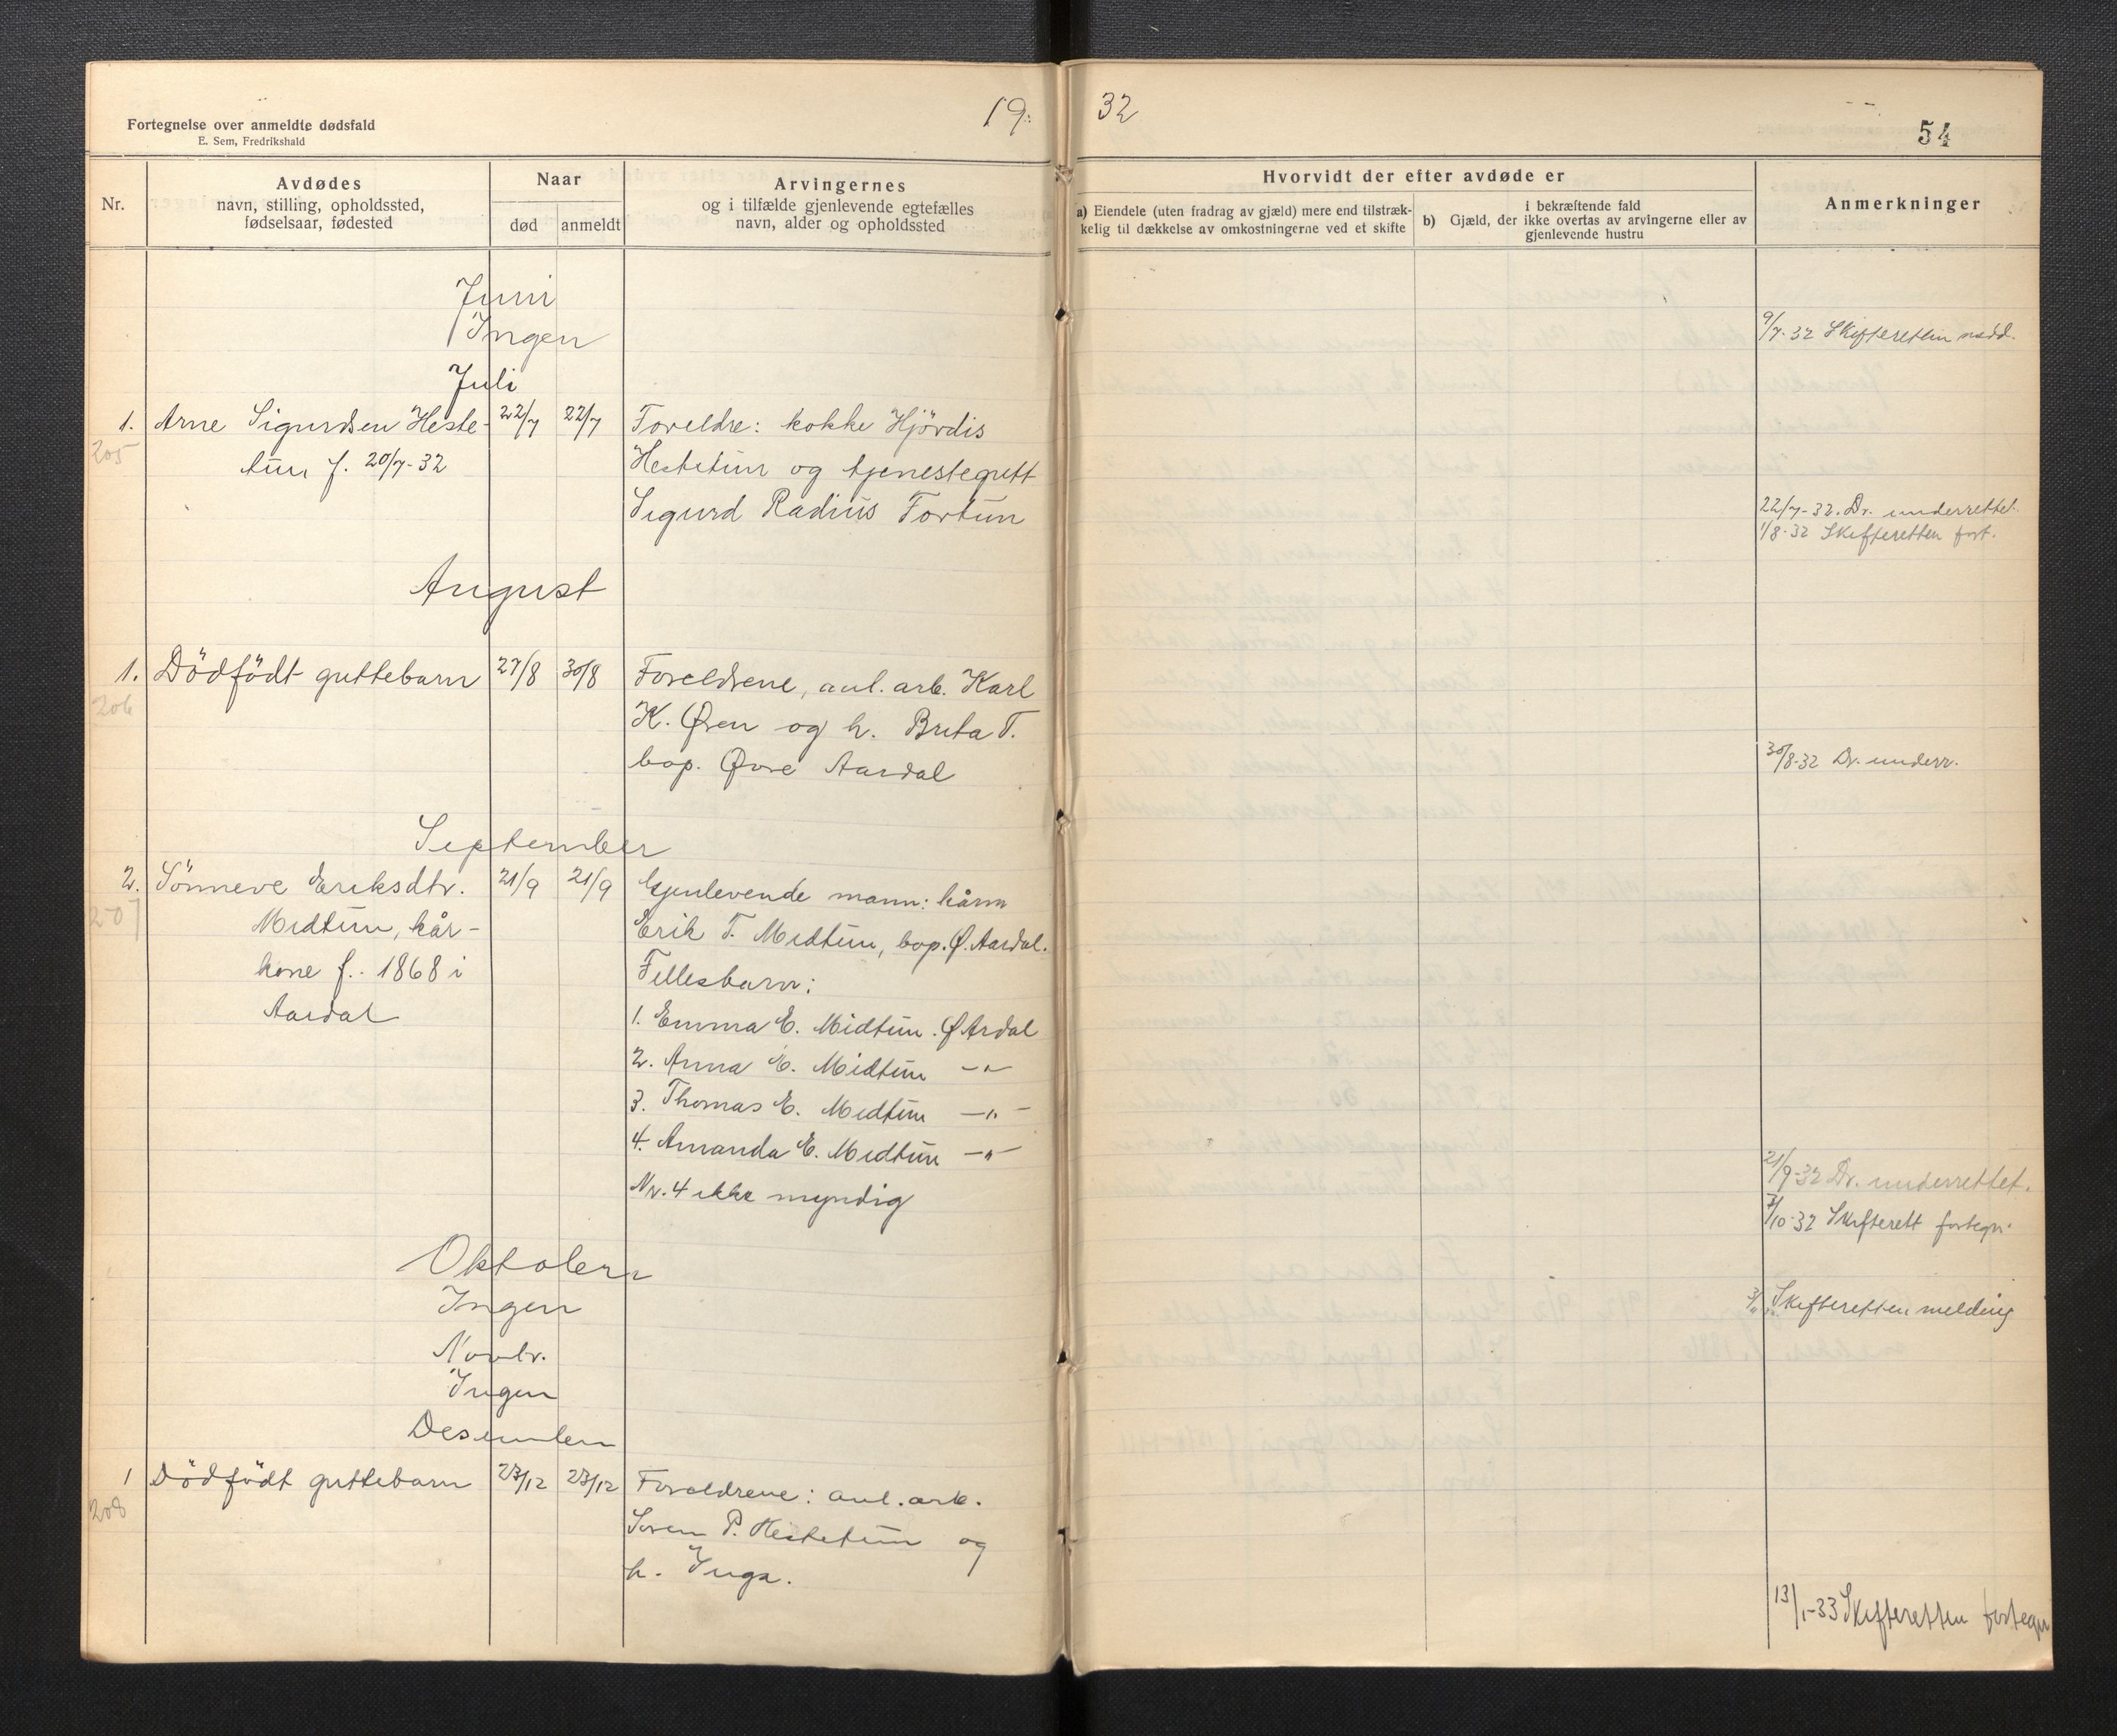 Fortegnelse over anmeldte dødsfald
E. Sem, Fredrikshald
19
32
54
Nr.
Avdødes
navn, stilling, opholdssted,
fødselsaar, fødested
Naar
død
anmeldt
Arvingernes
og i tilfælde gjenlevende egtefælles
navn, alder og opholdssted
Hvorvidt der efter avdøde er
a) Eiendele (uten fradrag av gjæld) mere end tilstræk-
kelig til dækkelse av omkostningerne ved et skifte
i bekræftende fald
b) Gjæld, der ikke overtas av arvingerne eller av
gjenlevende hustru
Anmerkninger
Juni
Ingen
9/7-32 Skifteretten medd.
Juli
1. Arne Sigurdsen Heste- 22/7 22/7 Foreldre: kokke Hjördis
205
tun f. 20/7-32 Hestetun og tjenestegutt
Sigurd Radius Fortun
22/7-32. Dr. underrettet.
1/8-32 Skifteretten fort.
August
1. Dödfödt guttebarn 27/8 30/8 Foreldrene, anl. arb. Karl
206
K. Øren og h. Brita T.
bop. Øvre Aardal
30/8-32 Dr. underr.
September
2. Sönneve Eriksdtr. 21/9 21/9 Gjenlevende mann: kårm
207
Midtun, kår- Erik T. Midtun, bop. Ø. Aardal.
kone f. 1868 i Fellesbarn:
Aardal
1. Emma E. Midtun. Ø Ardal
2. Anna E. Midtun —"—
3. Thomas E. Midtun —"—
4. Amanda E. Midtun —"—
Nr. 4 ikke myndig
21/9-32 Dr. underrettet.
/10-32 Skifterett fortegn.
Oktober
Ingen
Skifteretten melding
Novbr.
Ingen
Desember
1 Dödfödt guttebarn 23/12 23/12 Foreldrene: anl. arb.
208
Soren P. Hestetun og
h. Inga.
13/1-33 Skifteretten fortegn